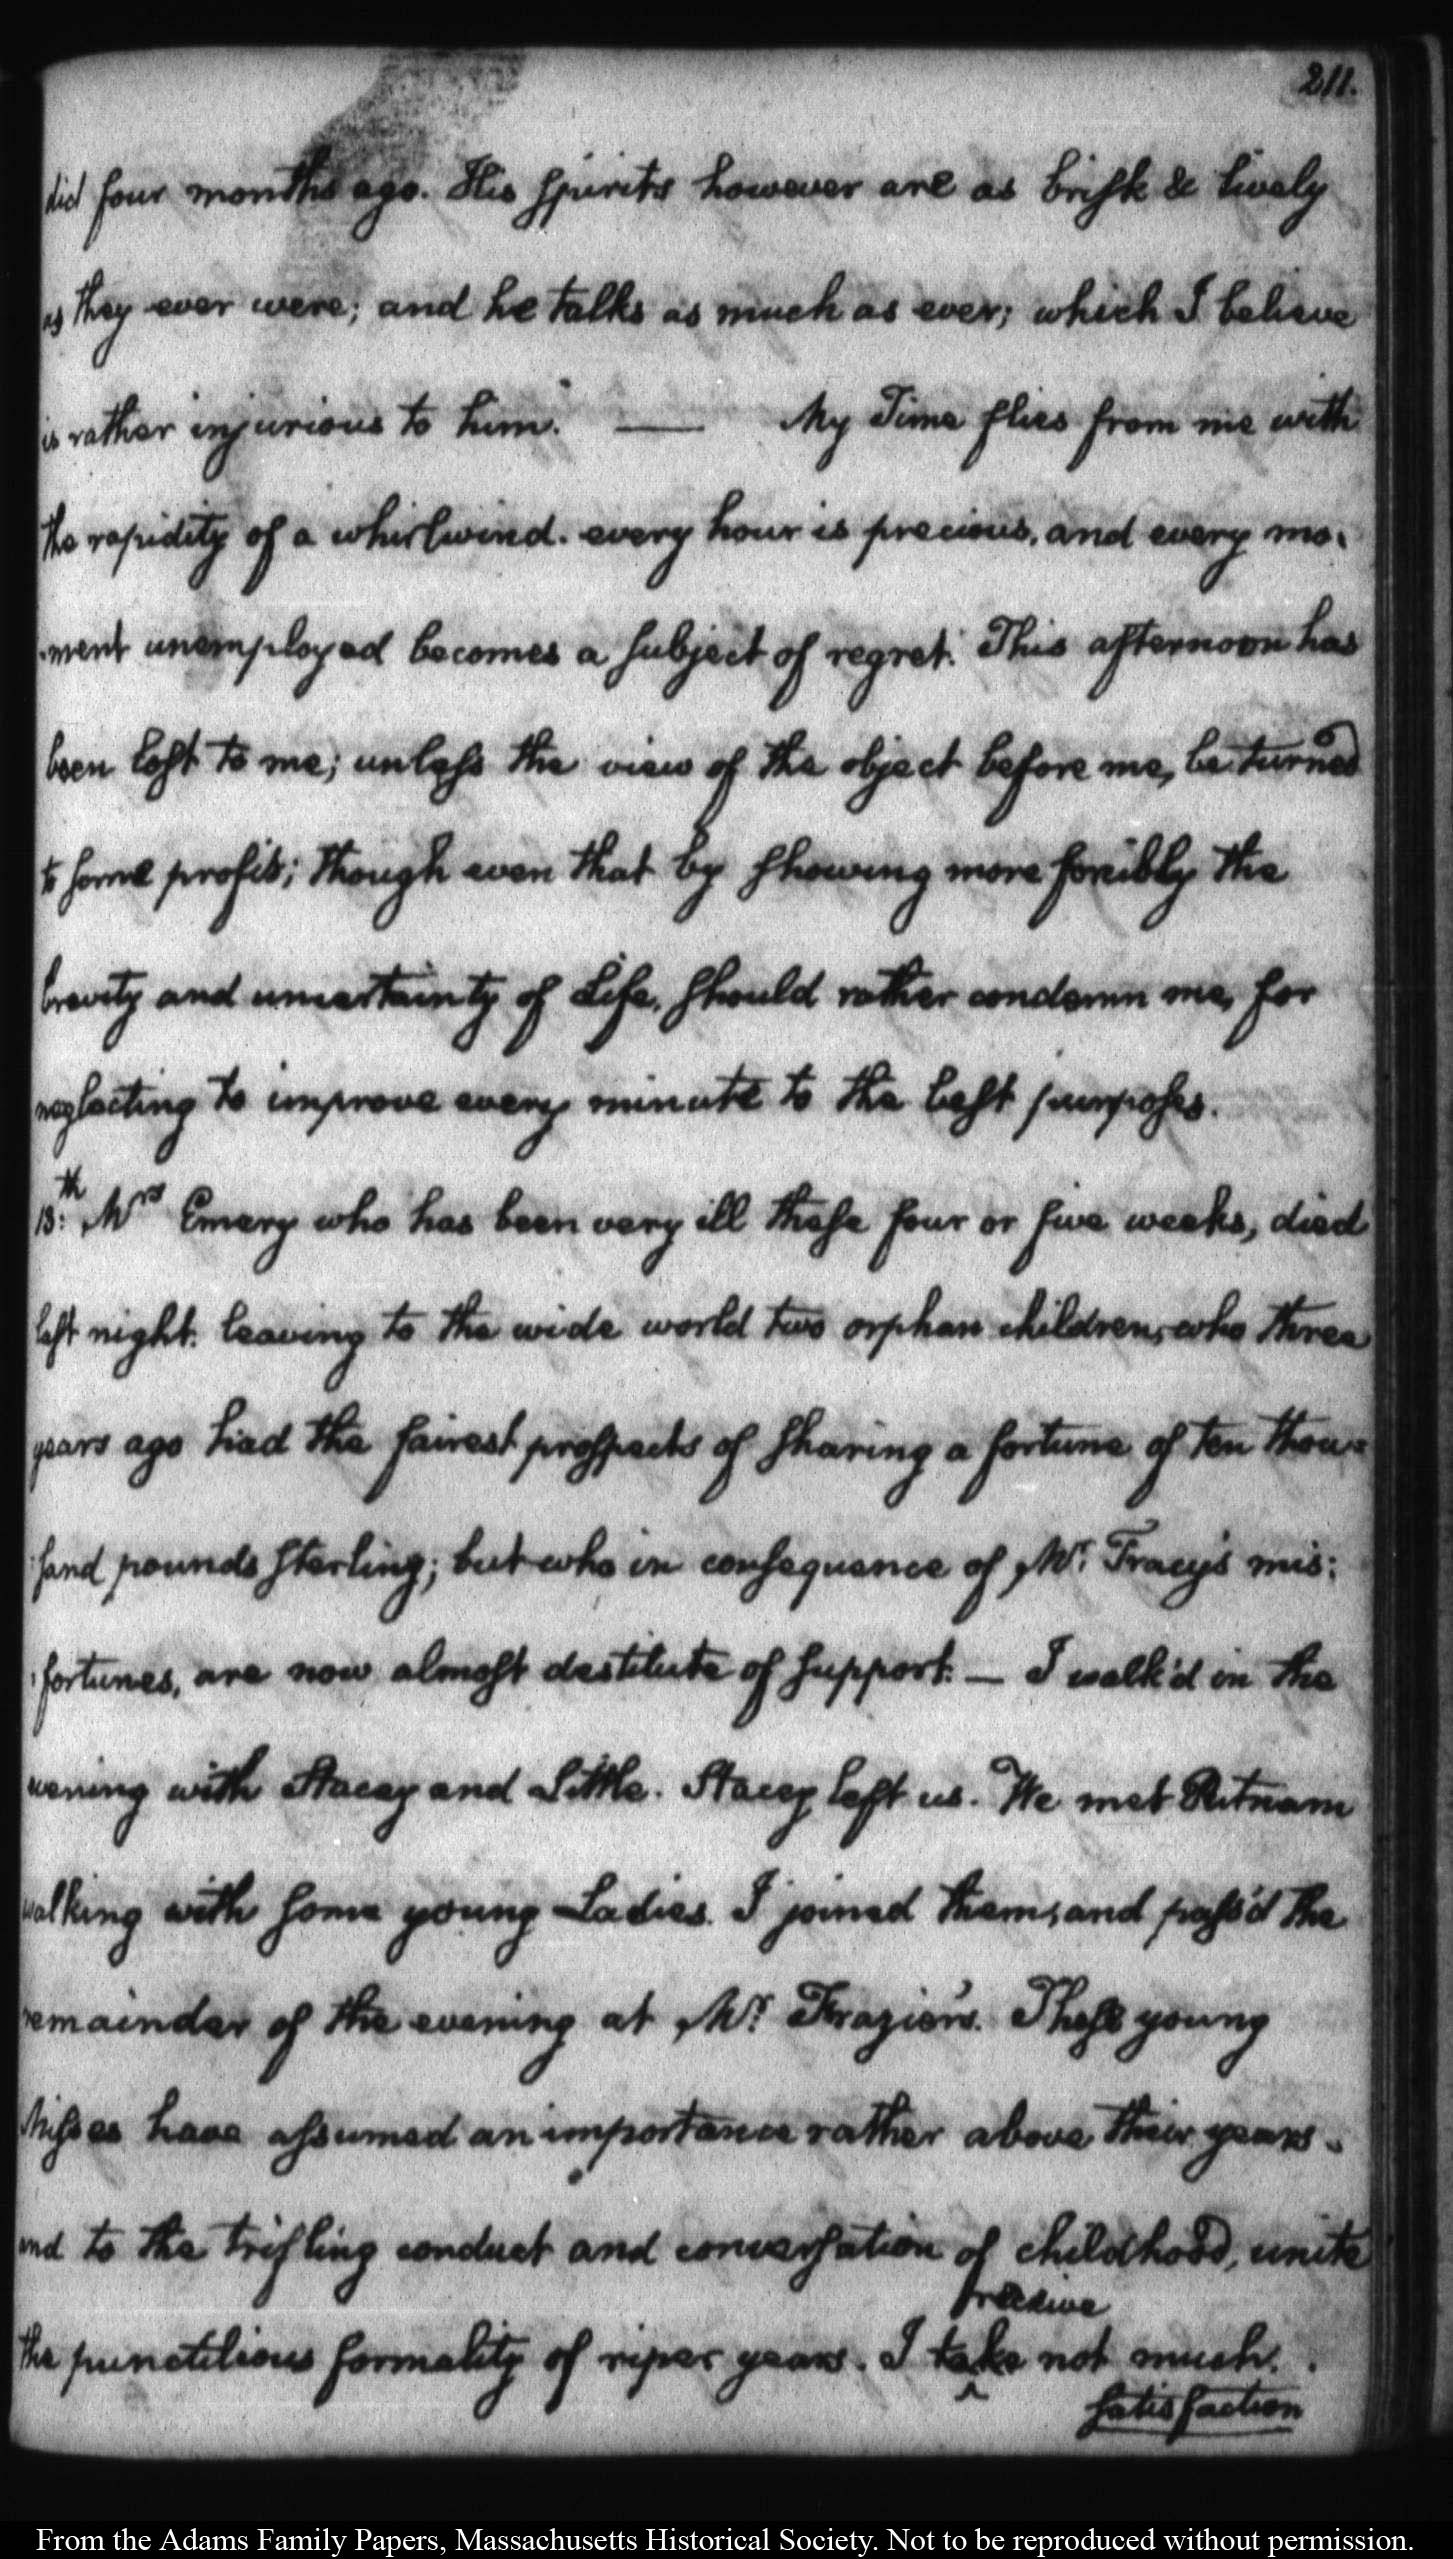 211.
did four months ago. His spirits however are as brisk & lively
as they ever were; and he talks as much as ever; which I believe
is rather injurious to him. — My Time flies from me with
the rapidity of a whirlwind. every hour is precious, and every mo-
-ment unemployed becomes a subject of regret. This afternoon has
been lost to me; unless the view of the object before me, be turned
to some profit; though even that by showing more forcibly the
brevity and uncertainty of Life, should rather condemn me, for
neglecting to improve every minute to the best purposes.
13:th Mrs Emery who has been very ill these four or five weeks, died
last night. leaving to the wide world two orphan children, who three
years ago had the fairest prospects of sharing a fortune of ten thou-
-sand pounds sterling; but who in consequence of Mr. Tracy's mis-
-fortunes, are now almost destitute of support. — I walk'd in the
evening with Stacey and Little. Stacey left us. We met Putnam
walking with some young Ladies. I joined them, and pass'd the
remainder of the evening at Mr. Frazier's. These young
Misses have assumed an importance rather above their years.
and to the trifling conduct and conversation of childhood, unite
the punctilious formality of riper years. I take not much
receive
satisfaction
From the Adams Family Papers, Massachusetts Historical Society. Not to be reproduced without permission.